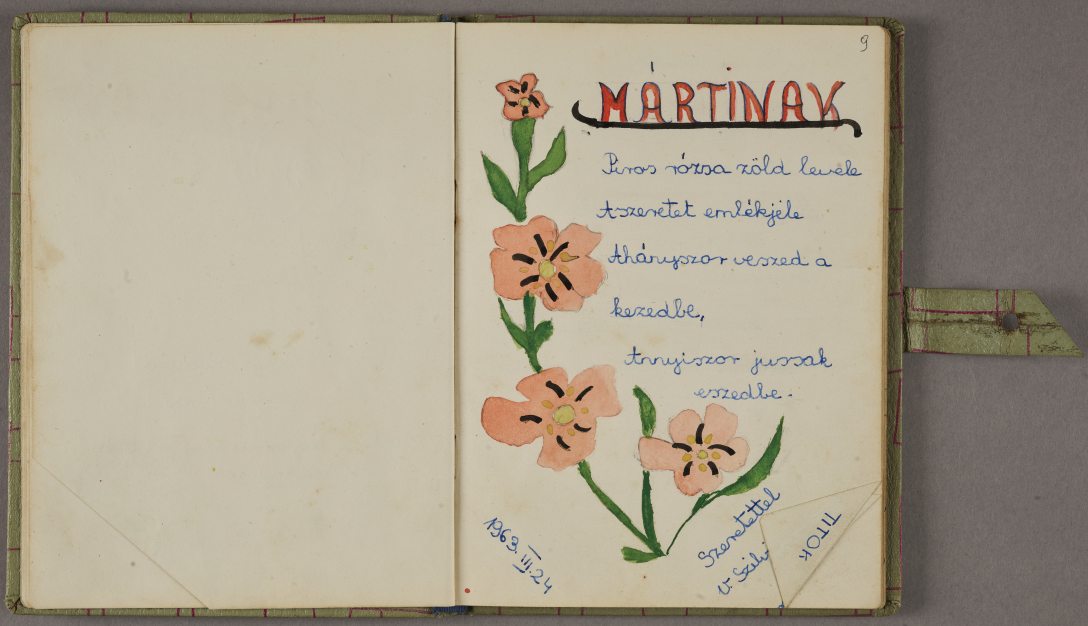 9
MÁRTINAK
Piros rózsa zöld levele
A szeretet emlékjele
Ahányszor veszed a
kezedbe,
Annyiszor jussak
eszedbe.
1963. III. 24
Szeretettel
V. Szilvi
TITOK